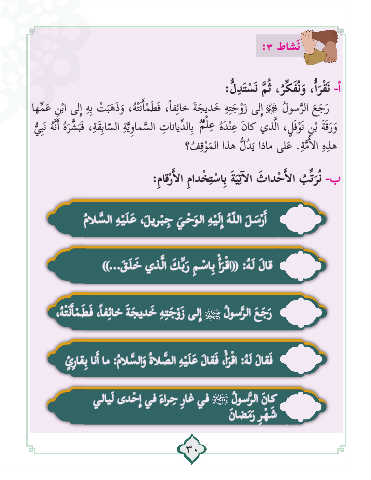 نَشاط ٣:
أ- نَقْرَأُ، وَنُفَكِّرُ، ثُمَّ نَسْتَدِلُّ:
رَجَعَ الرَّسولُ ﷺ إِلى زَوْجَتِهِ خَديجَةَ خائِفاً، فَطَمْأَنَتْهُ، وَذَهَبَتْ بِهِ إِلى ابْنِ عَمِّها
وَرَقَةَ بْنِ نَوْفَلٍ، الَّذي كانَ عِنْدَهُ عِلْمٌ بِالدِّياناتِ السَّماوِيَّةِ السّابِقَةِ، فَبَشَّرَهُ أَنَّهُ نَبِيُّ
هذِهِ الأُمَّةِ. عَلى ماذا يَدُلُّ هذا المَوْقِفُ؟
ب- نُرَتِّبُ الأَحْداثَ الآتِيَةَ بِاسْتِخْدامِ الأَرْقامِ:
أَرْسَلَ اللّهُ إِلَيْهِ الوَحْيَ جِبْريلَ، عَلَيْهِ السَّلامُ
قالَ لَهُ: ((اقْرَأْ بِاسْمِ رَبِّكَ الَّذي خَلَقَ...))
رَجَعَ الرَّسولُ ﷺ إِلى زَوْجَتِهِ خَديجَةَ خائِفاً، فَطَمْأَنَتْهُ،
فَقالَ لَهُ: اقْرَأْ، فَقالَ عَلَيْهِ الصَّلاةُ وَالسَّلامُ: ما أَنا بِقارِئٍ
كانَ الرَّسولُ ﷺ في غارِ حِراءَ في إِحْدى لَيالي
شَهْرِ رَمَضانَ
٣٠